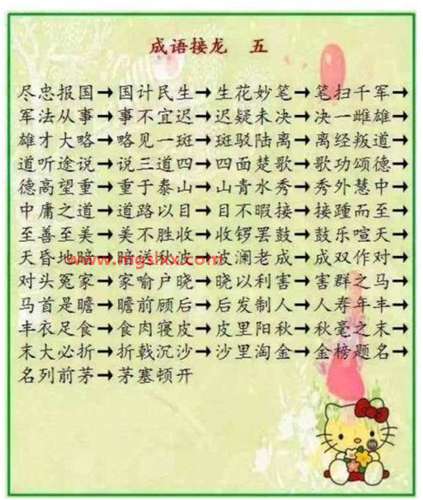 成语接龙 五
尽忠报国→国计民生→生花妙笔→笔扫千军→
军法从事→事不宜迟→迟疑未决→决一雌雄→
雄才大略→略见一斑→斑驳陆离→离经叛道→
道听途说→说三道四→四面楚歌→歌功颂德→
德高望重→重于泰山→山青水秀→秀外慧中→
中庸之道→道路以目→目不暇接→接踵而至→
至善至美→美不胜收→收锣罢鼓→鼓乐喧天→
天昏地暗→暗送秋波→波澜老成→成双作对→
www.mgshxx.com
对头冤家→家喻户晓→晓以利害→害群之马→
马首是瞻→瞻前顾后→后发制人→人寿年丰→
丰衣足食→食肉寝皮→皮里阳秋→秋毫之末→
末大必折→折戟沉沙→沙里淘金→金榜题名→
名列前茅→茅塞顿开